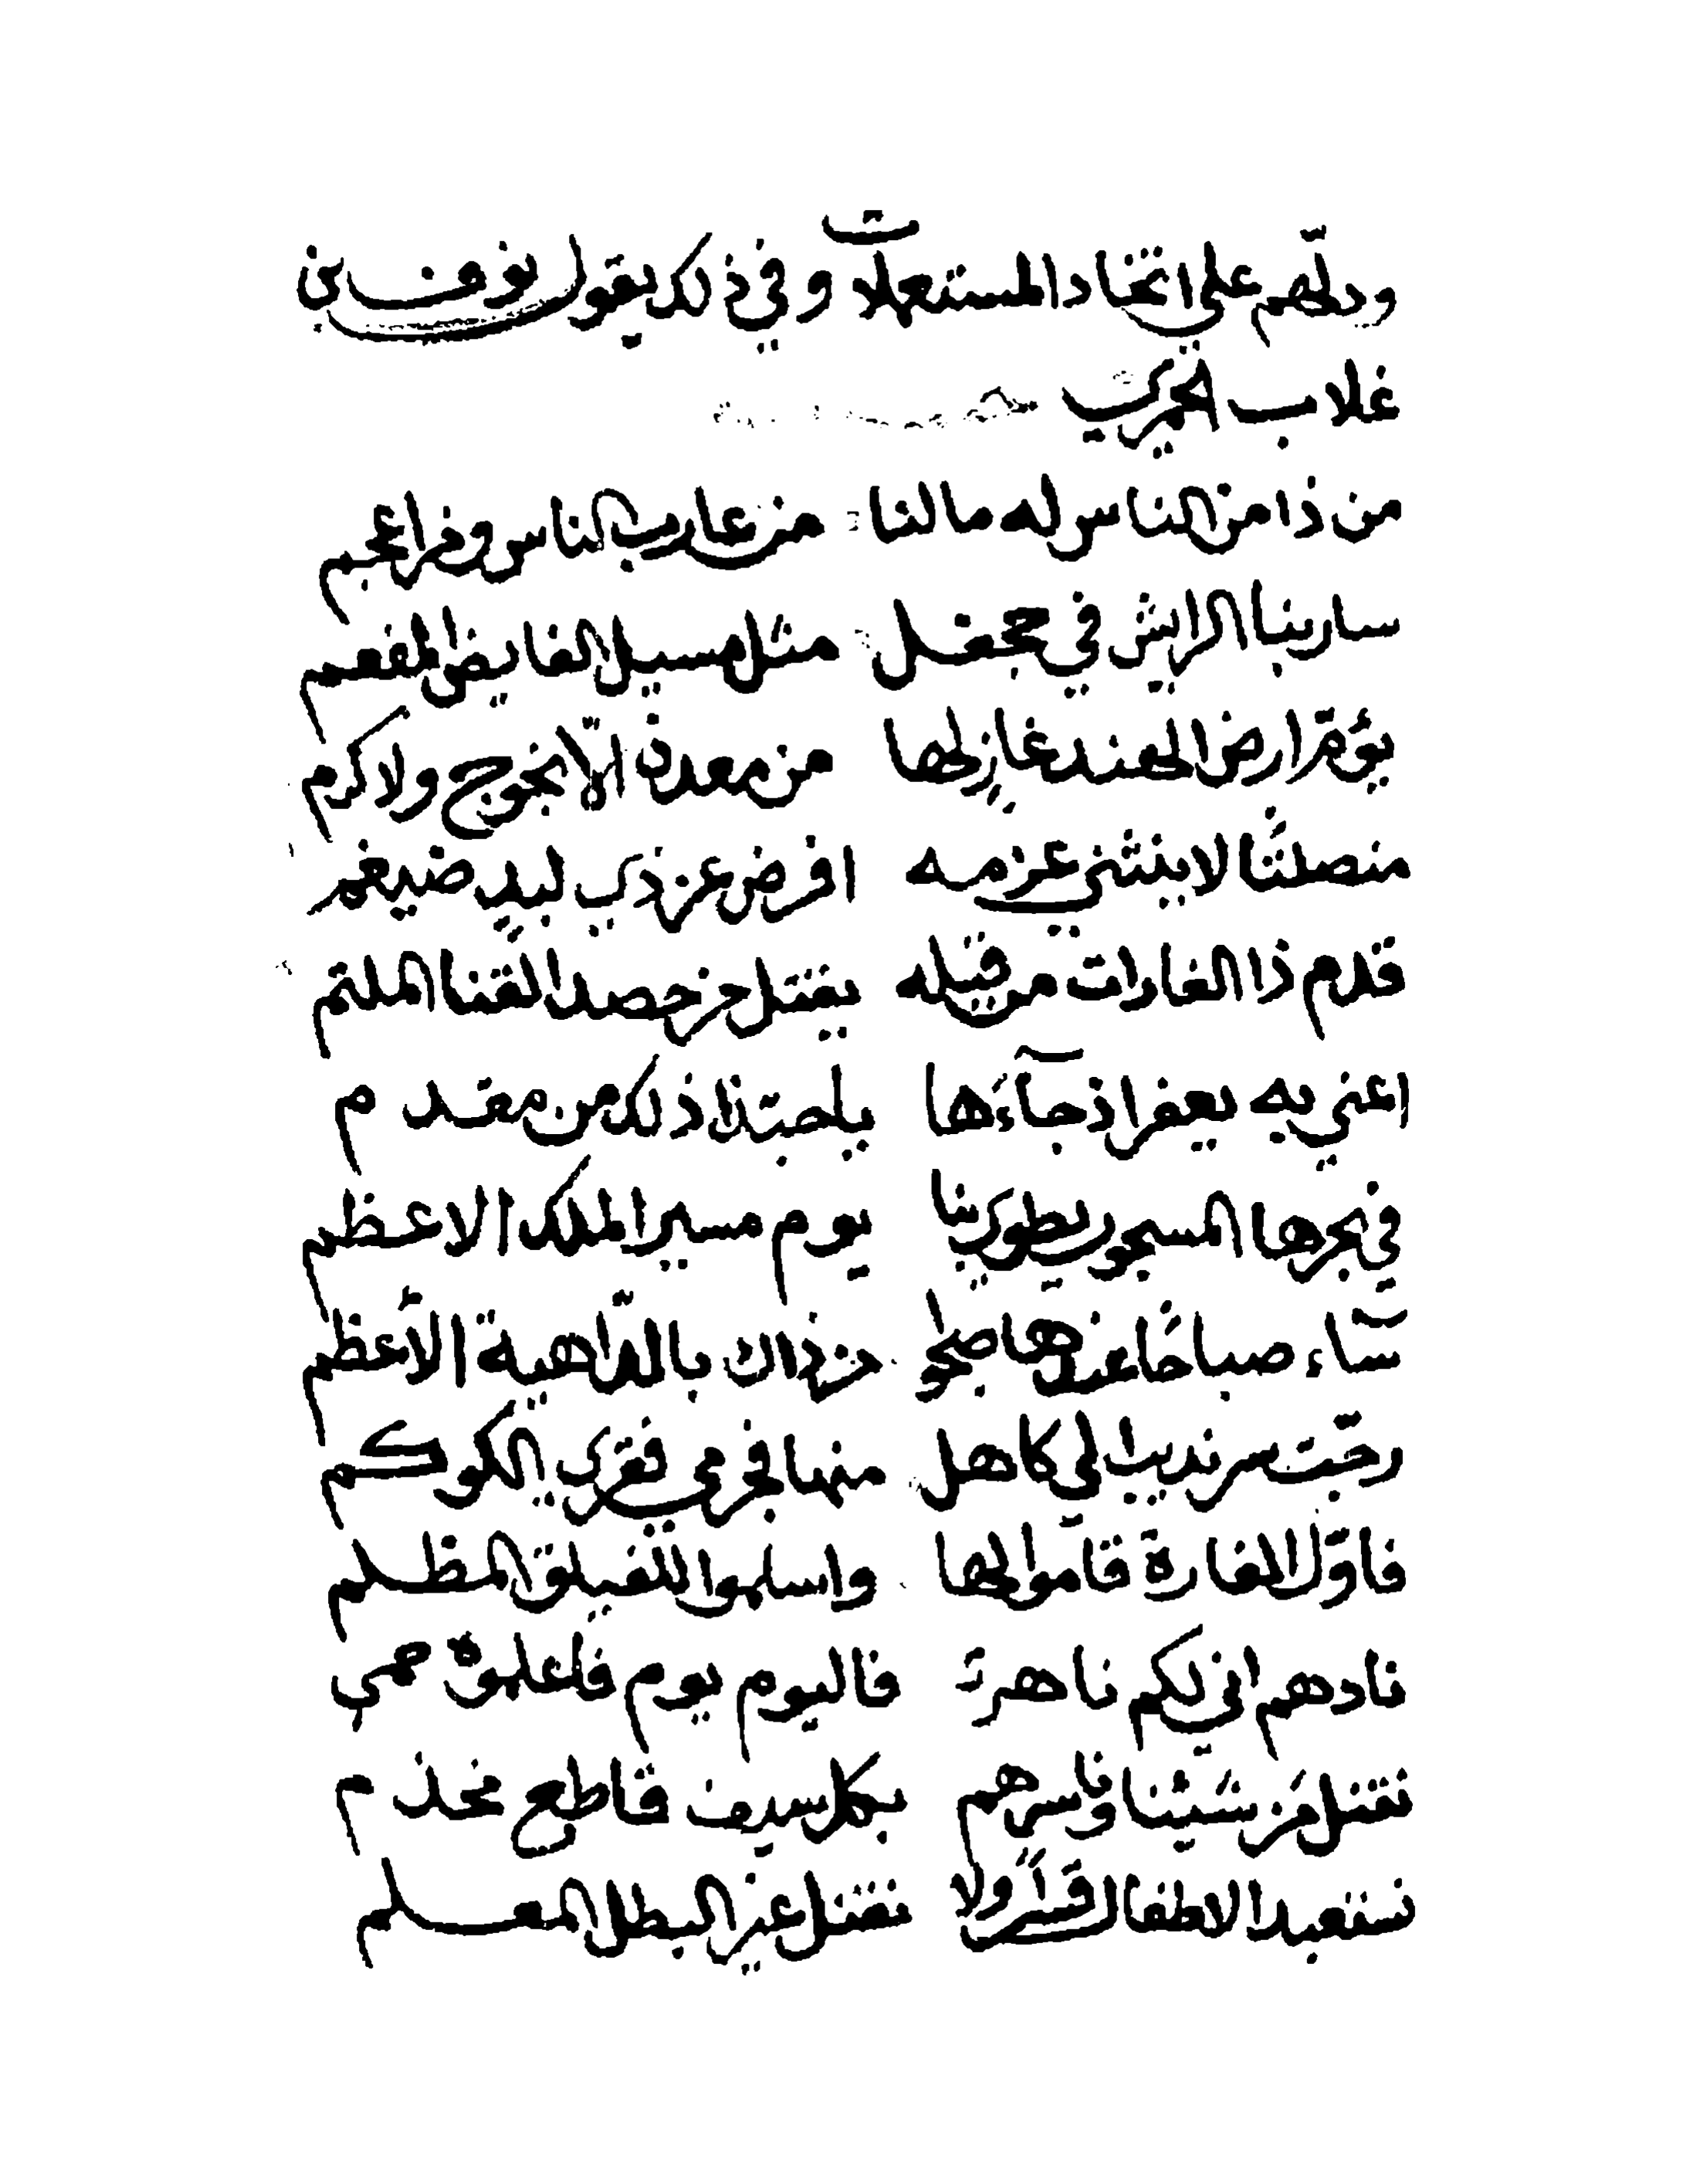 ودلّهم على اتخاذ المستعملات وفي ذلك يقول نوف بن
غلاب الحميري
من ذا من الناس له ما لنا من عارب الناس ومن اعجم
سار بنا الرايش في جحفل مثل مسيل الفايض المفعم
يؤم ارض الهند غاز لها من معدن الانجوج ولا كرم
منصلتا لا ينثني عزمه افرض عن ذي لبد ضيغم
قدم ذا الغارات من قبله يقتل من حصد القنا الملتم
اعني به يعفر اذ جآءها يا حبذا ذلك من مقدم
في بحرها المسجور يطورينا يوم مسير الملك الاعظم
سّاء صباحًا عندها من ذاك بالدّاهية الأعظم
رجّت سرندب الى كاهل منها فرمي فقرى الكوكم
فاوّل الغارة قاموا لها واسلموا للفيلق المظلم
نادهم اني لكم ناهر فاليوم يوم فاعلموه حمي
نقتل من شئنا وناسرهم بكل سيف قاطع مخذم
نستعبد الاطفال قسرًا ولا نقتل غير البطل المعلم